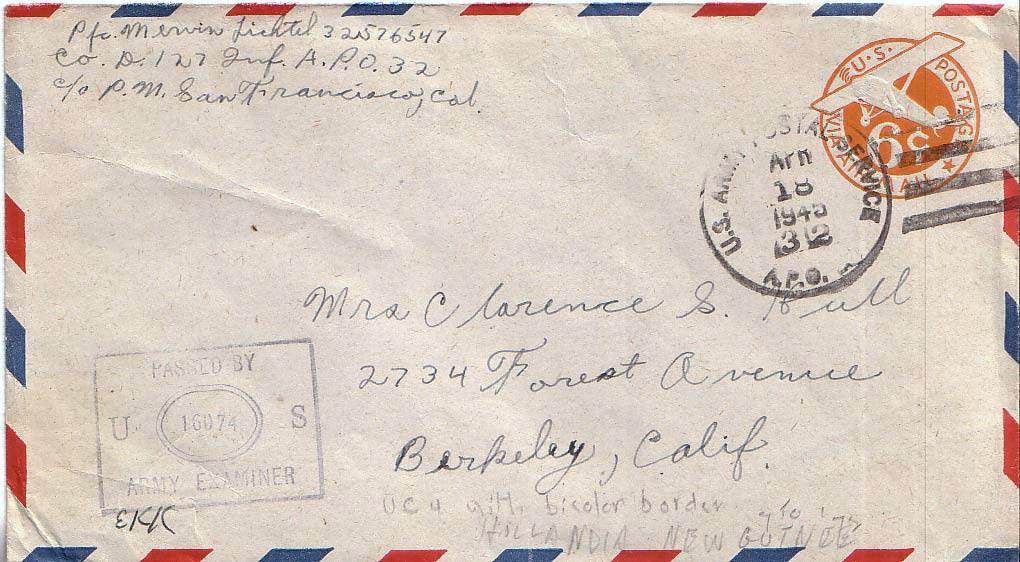 Pfc. Mervin Lichtel 32576547
Co. D. 127 Inf. A.P.O. 32
c/o P.M. San Francisco, Cal.
U.S. POSTAGE
VIA AIR MAIL
6c
U.S. ARMY POSTAL SERVICE
18
32
A.P.O.
Mrs Clarence S. Hull
2734 Forest Avenue
Berkeley, Calif.
PASSED BY
U S
ARMY EXAMINER
with bicolor border
HOLLANDIA NEW GUINEE